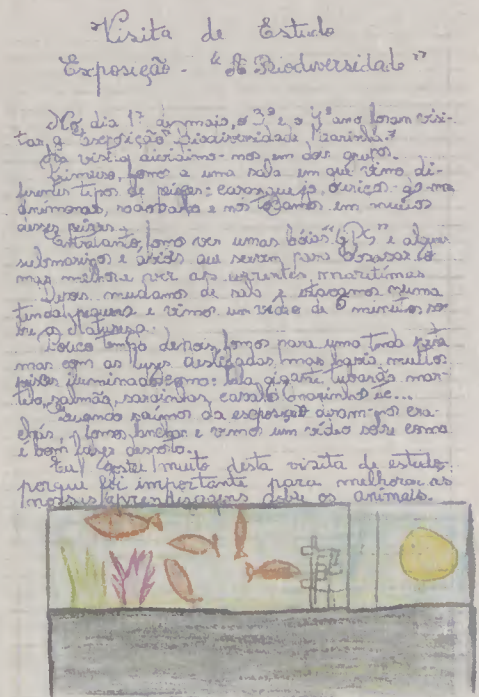 Visita de Estudo
Exposição - "A Biodiversidade"
No dia 17 de maio, o 3º e o 4º ano foram visi-
tar a exposição Biodiversidade Marinha.
Na visita, dividimo-nos, em dois grupos.
Primeiro, fomos a uma sala em que vimos di-
ferentes tipos de peixes: caranguejo, ouriços-do-mar
e nós tocamos em muitos
desses peixes.
Entretanto, fomos ver umas bóias "GPS" e alguns
submarinos e aviões que servem para
mas melhor e ver as correntes marítimas
Depois mudamos de sala e numa
tenda pequena e vimos um vídeo de 6 minutos so-
bre a natureza.
Pouco tempo depois, fomos para uma tenda
mas com as luzes desligadas mas havia muitos
peixes iluminados como: lula gigante, tubarão mar-
telo, salmão, sardinhas, cavalo marinho e...
Quando saímos da exposição deram-nos cra-
chás, fomos lanchar e vimos um vídeo sobre como
é bom fazer desporto.
Eu gostei muito desta visita de estudo,
porque foi importante para melhorar as
nossas aprendizagens sobre os animais.